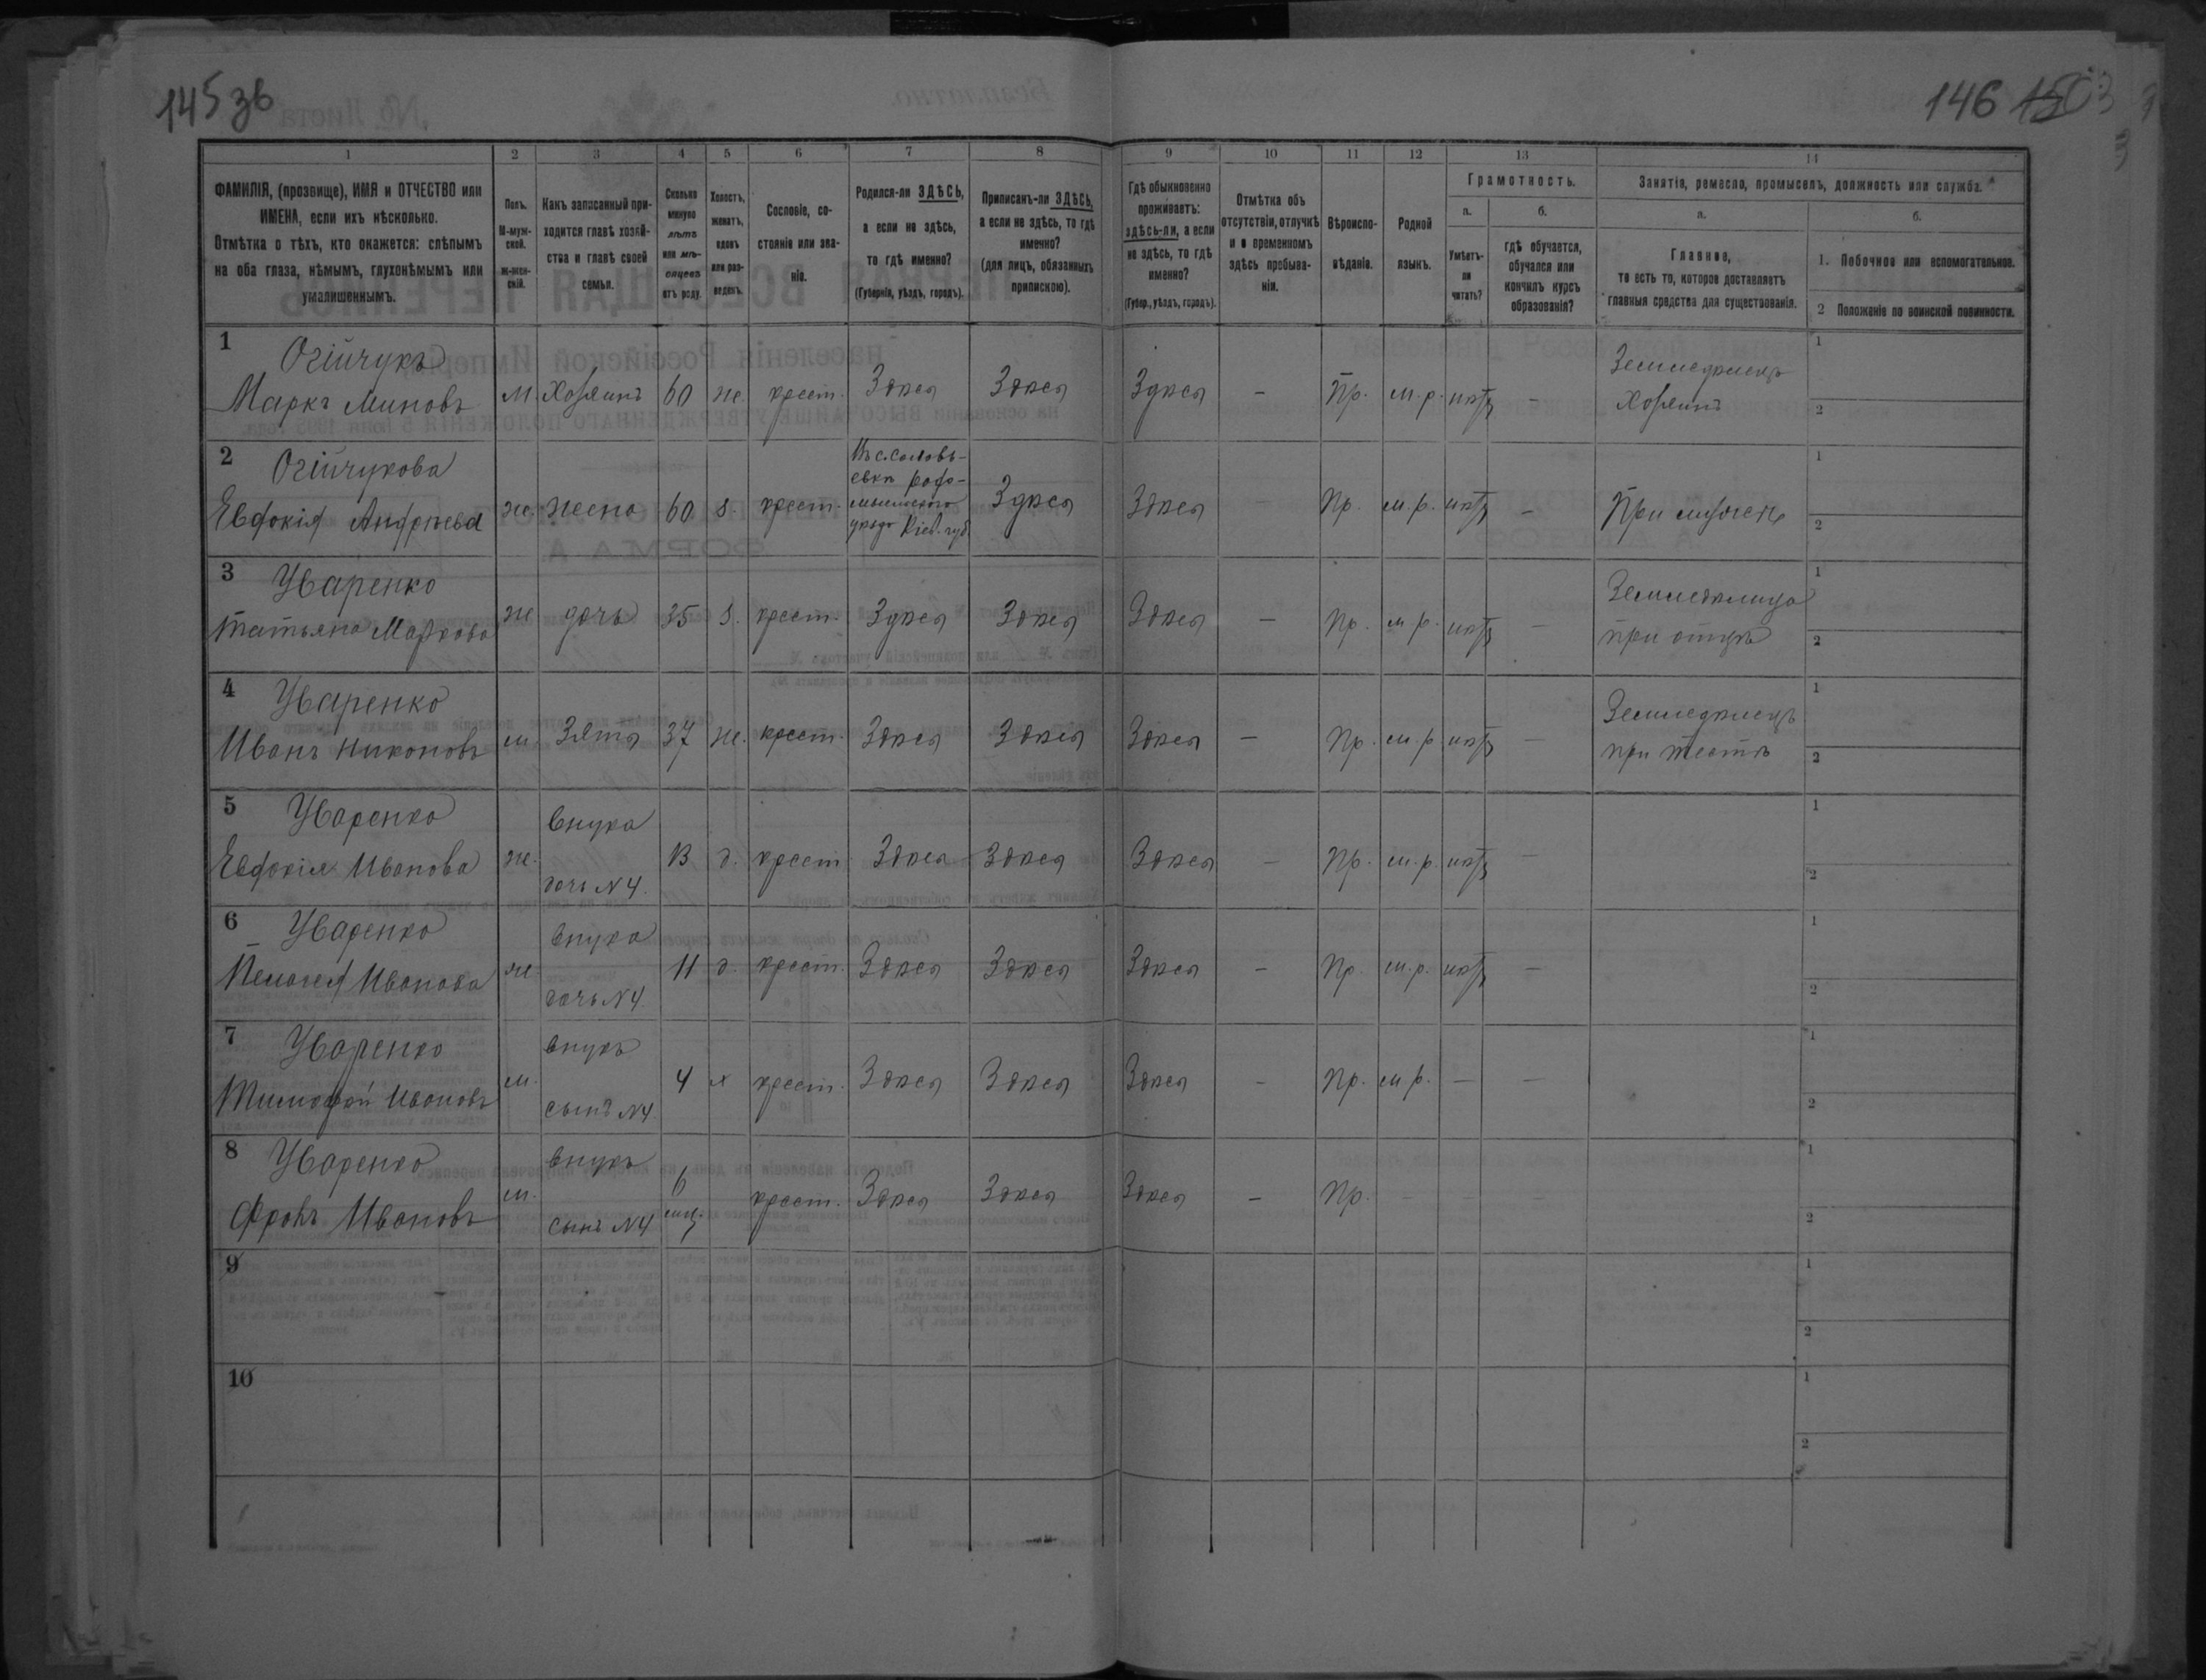 145 зв
146 1503
1 2 3 4 5 6 7 8 9 10 11 12 13 14
ФАМИЛІЯ, (прозвище), ИМЯ и ОТЧЕСТВО или
ИМЕНА, если ихъ нѣсколько.
Отмѣтка о тѣхъ, кто окажется: слѣпымъ
на оба глаза, нѣмымъ, глухонѣмымъ или
умалишеннымъ.
Полъ.
М-муж-
ской.
ж-жен-
скій.
Какъ записанный при-
ходится главѣ хозяй-
ства и главѣ своей
семьи.
Сколько
минуло
лѣтъ
или мѣ-
сяцевъ
отъ роду.
Холостъ,
женатъ,
вдовъ
или раз-
веденъ.
Сословіе, со-
стояніе или зва-
ніе.
Родился-ли ЗДѢСЬ,
а если не здѣсь,
то гдѣ именно?
(Губернія, уѣздъ, городъ).
Приписанъ-ли ЗДѢСЬ,
а если не здѣсь, то гдѣ
именно?
(для лицъ, обязанныхъ
припискою).
Гдѣ обыкновенно
проживаетъ:
здѣсь-ли, а если
не здѣсь, то гдѣ
именно?
(Губер., уѣздъ, городъ).
Отмѣтка объ
отсутствіи, отлучкѣ
и о временномъ
здѣсь пребыва-
ніи.
Вѣроиспо-
вѣданіе.
Родной
языкъ.
Грамотность.
а.
Умѣетъ-
ли
читать?
б.
гдѣ обучается,
обучался или
кончилъ курсъ
образованія?
Занятіе, ремесло, промыселъ, должность или служба.
а.
Главное,
то есть то, которое доставляетъ
главныя средства для существованія.
б.
1. Побочное или вспомогательное.
2 Положеніе по воинской повинности.
1 Огійчукъ
Маркъ Миновъ м. Хозяинъ 60 же. крест. Здѣся Здѣся Здѣся - Пр. м.р. нѣтъ - Земледѣлецъ
Хозяинъ
1
2
2 Огійчукова
Евдокія Андрѣева же. жена 60 з. крест. Въ с. Соловь-
евкѣ Радо-
мысльскаго
уѣзда Кіев. губ. Здѣся Здѣся - Пр. м.р. нѣтъ - При мужѣ
1
2
3 Уваренко
Татьяна Маркова же дочь 35 з. крест. Здѣся Здѣся Здѣся - Пр. м р. нѣтъ - Земледѣлица
при отцѣ
1
2
4 Уваренко
Иванъ Никоновъ м. Зять 37 же. крест. Здѣся Здѣся Здѣся - Пр. м.р. нѣтъ - Земледѣлецъ
при тестѣ
1
2
5 Уваренко
Евдокія Иванова же. внука
дочь N4. 13 д. крест. Здѣся Здѣся Здѣся - Пр. м.р. нѣтъ -
1
2
6 Уваренко
Пелагея Иванова же. внука
дочь N4 11 д. крест. Здѣся Здѣся Здѣся - Пр. м.р. нѣтъ -
1
2
7 Уваренко
Тимофѣй Ивановъ м. внукъ
сынъ N4 4 х крест. Здѣся Здѣся Здѣся - Пр. м р. - -
1
2
8 Уваренко
Фролъ Ивановъ м. внукъ
сынъ N4 6
мц. крест. Здѣся Здѣся Здѣся - Пр. - - -
1
2
9
1
2
10
1
2